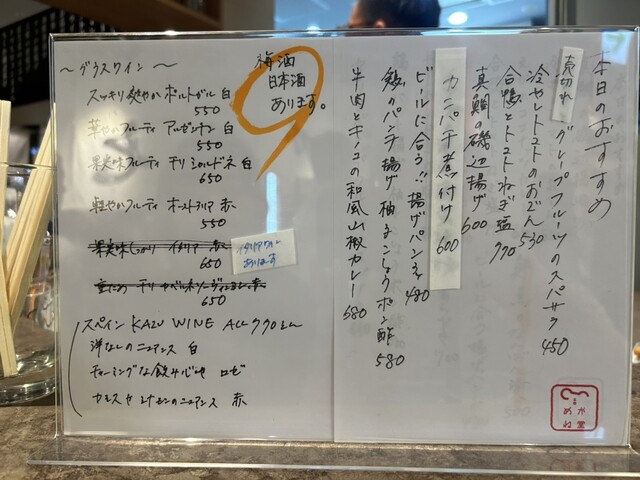 本日のおすすめ
売切れ グレープフルーツのスパサラ 450
冷やしトマトのおでん 530
合鴨とトマトねぎ塩 770
真鯛の磯辺揚げ 600
カンパチ煮付け 600
ビールに合う!!揚げパンネ 480
鶏のパンチ揚げ 柚子こしょうポン酢 580
牛肉とキノコの和風山椒カレー 680
〜グラスワイン〜
スッキリ爽やか ポルトガル 白
550
華やかフルーティ アルゼンチン 白
550
果実味フルーティ チリ シャルドネ 白
650
軽やかフルーティ オーストラリア 赤
550
果実味しっかり イタリア 赤
650
重ため チリ カベルネソーヴィニヨン 赤
650
イタリアワイン
あります
スペイン KAZU WINE ALL 770えん
洋なしのニュアンス 白
チャーミングな飲み心地 ロゼ
カシスやシナモンのニュアンス 赤
梅酒
日本酒
あります。
9
めがね堂